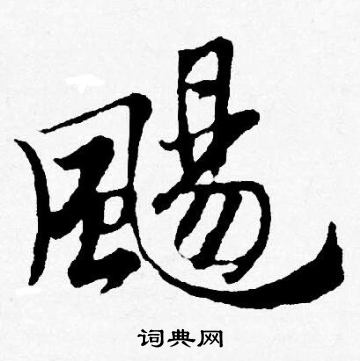 颺
词典网